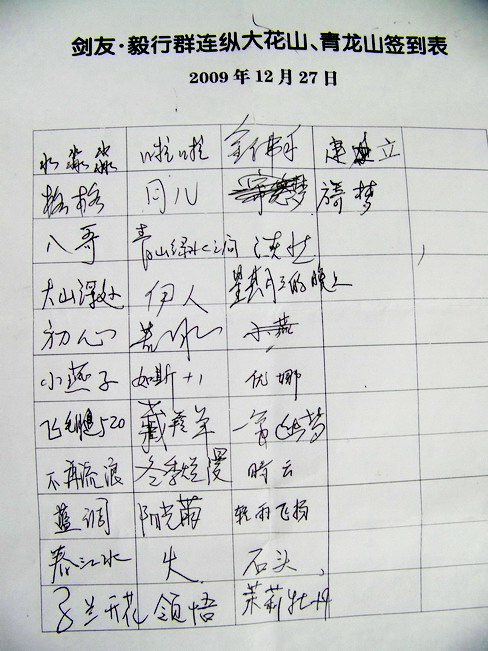 剑友·毅行群连纵大花山、青龙山签到表
2009 年 12 月 27 日
水淼淼 啦啦 建立
格格 月儿 漪梦
八哥 青山绿水之间 淡然
大山深处 伊人 星期三的晚上
初心 若水 小燕
小燕子 如斯+1 优娜
飞毛腿520 一帘幽梦
不再流浪 冬季烂漫 晴云
蓝调 阳光 轻雨飞扬
春江水 火 石头
兰开花 领悟 茉莉牡丹